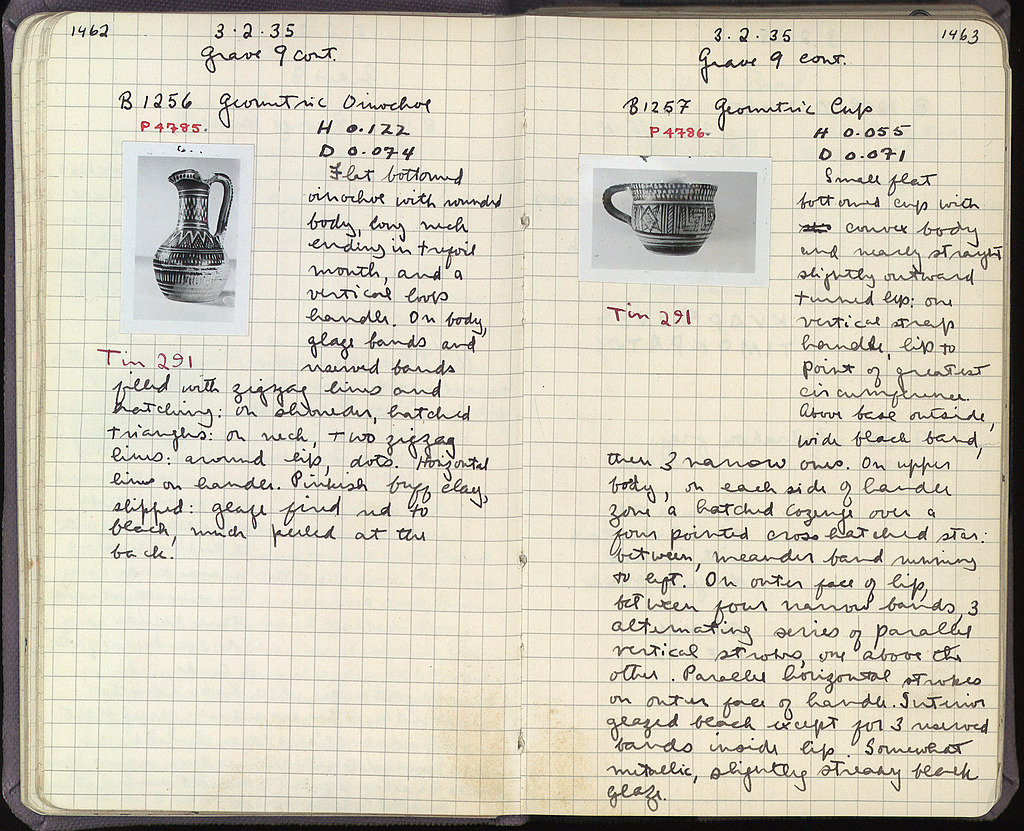 1462
3.2.35
Grave 9 cont.
B 1256 Geometric Oinochoe
P 4785.
H 0.122
D 0.074
Flat bottomed
oinochoe with rounded
body, long neck
ending in trefoil
mouth, and a
vertical loop
handle. On body,
glaze bands and
Tin 291
reserved bands
filled with zigzag lines and
hatching: on shoulder, hatched
triangles: on neck, two zigzag
lines: around lip, dots. Horizontal
lines on handle. Pinkish buff clay,
slipped: glaze fired red to
black, much peeled at the
back.
3.2.35
1463
Grave 9 cont.
B1257 Geometric Cup
P 4786.
H 0.055
D 0.071
Small flat
bottomed cup with
convex body
and nearly straight
slightly outward
turned lip: one
Tin 291
vertical strap
handle, lip to
point of greatest
circumference.
Above base outside,
wide black band,
then 3 narrow ones. On upper
body, on each side of handle
zone a hatched lozenge over a
four pointed cross hatched star:
between, meander band running
to left. On outer face of lip,
between four narrow bands, 3
alternating series of parallel
vertical strokes, one above the
other. Parallel horizontal strokes
on outer face of handle. Interior
glazed black except for 3 reserved
bands inside lip. Somewhat
metallic, slightly streaky black
glaze.